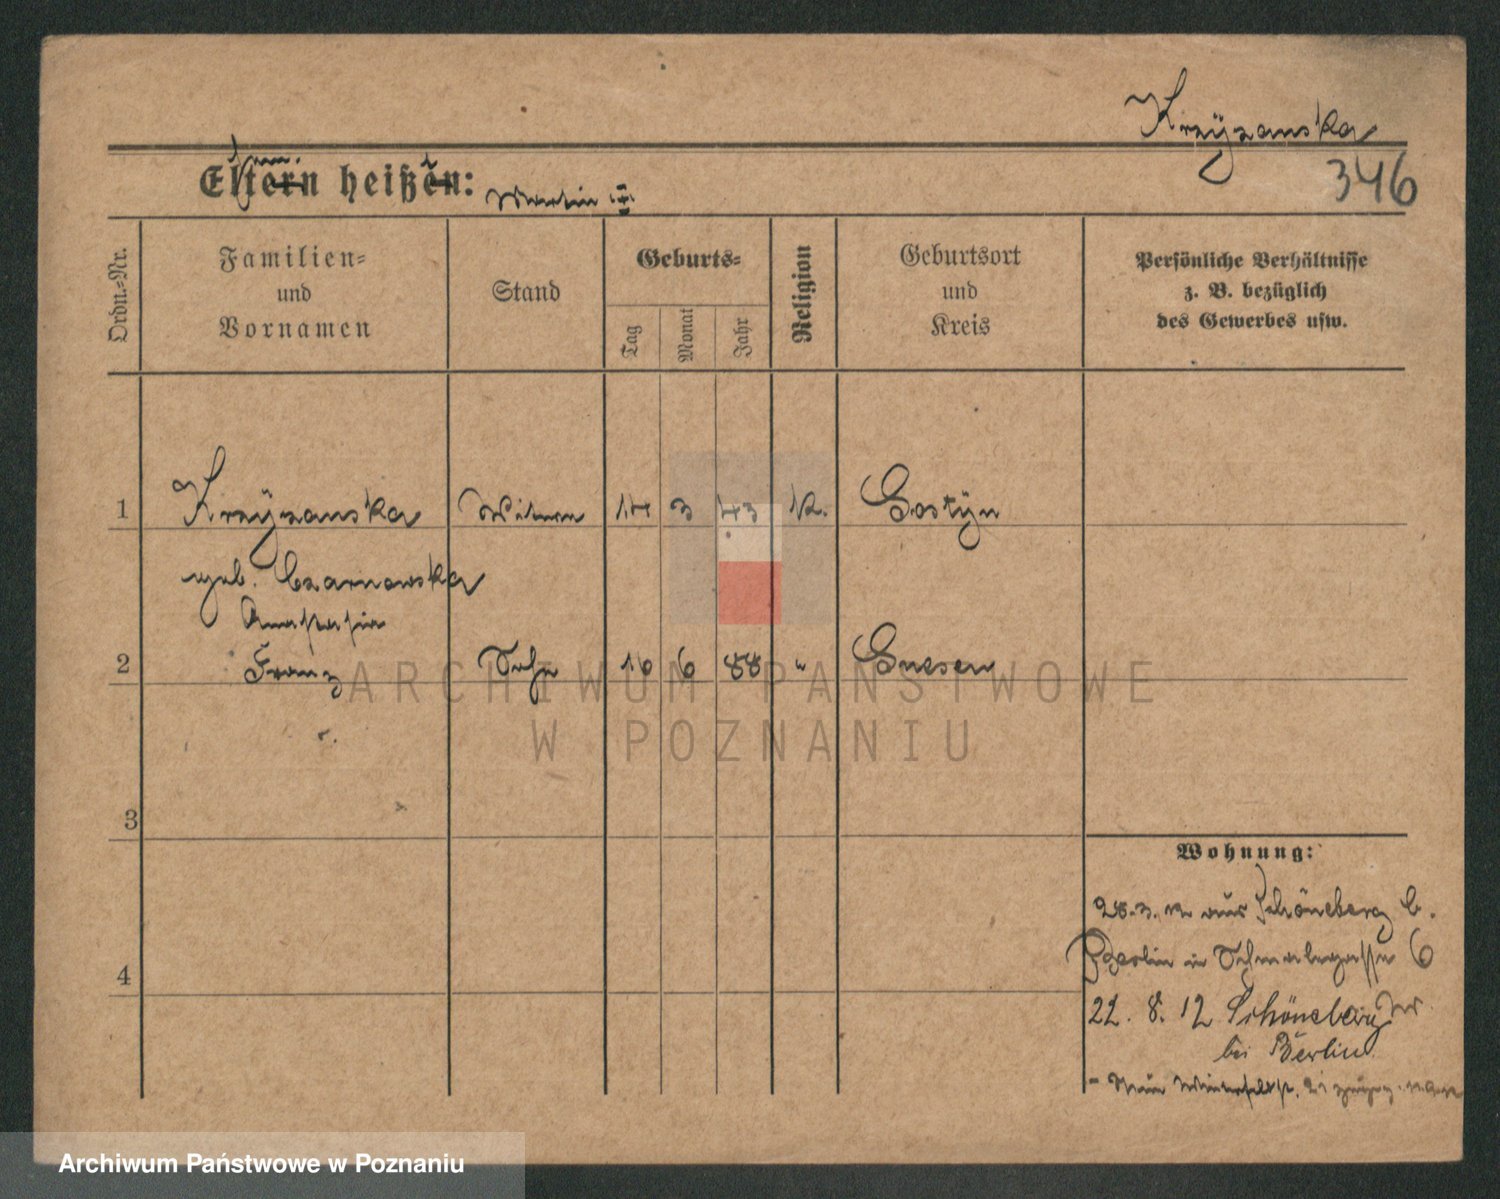 Krzÿzanska
346
Eltern heißen: Martin
Ordn.-Nr.
Familien-
und
Vornamen
Stand
Geburts-
Tag
Monat
Jahr
Religion
Geburtsort
und
Kreis
Persönliche Verhältnisse
z. B. bezüglich
des Gewerbes usw.
1 Krzÿzanska Witwe 14 3 43 k. Gostÿn
geb. Czarnowska
Anastasia
2 Franz Sohn 16 6 88 " Gnesen
3
4
Wohnung:
28.3. aus Schöneberg b.
Berlin in 6
22. 8. 12 Schöneberg
bei Berlin
ARCHIWUM PAŃSTWOWE
W POZNANIU
Archiwum Państwowe w Poznaniu